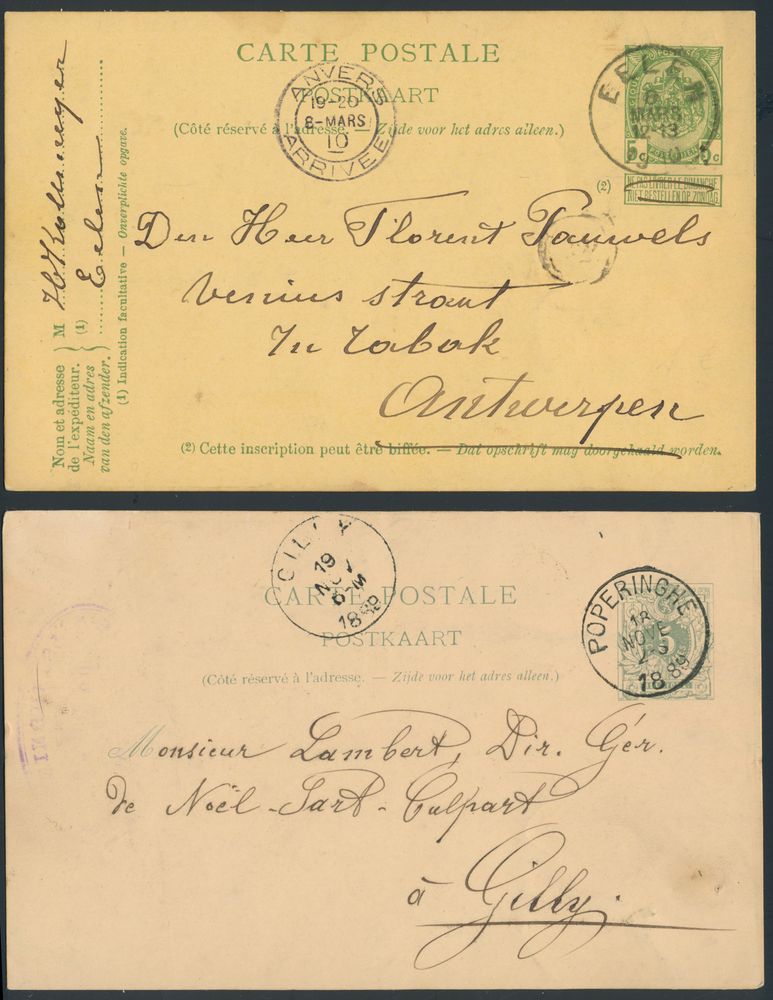 CARTE POSTALE
POSTKAART
(Côté réservé à l'adresse. — Zijde voor het adres alleen.)
ANVERS
19-20
8-MARS
10
ARRIVEE
EELEN
8
MARS
12-13
5c 5c
(2) NE PAS LIVRER LE DIMANCHE
NIET BESTELLEN OP ZONDAG
Den Heer Florent Pauwels
straat
In Tabak
Antwerpen
(2) Cette inscription peut être biffée. — Dat opschrift mag doorgehaald worden.
Nom et adresse
de l'expéditeur.
Naam en adres
van den afzender.
M
(1) Eelen
(1) Indication facultative — Onverplichte opgave.
CARTE POSTALE
POSTKAART
(Côté réservé à l'adresse. — Zijde voor het adres alleen.)
GILLY
19
NOV
6-M
1889
POPERINGHE
18
NOVE
1889
Monsieur Lambert, Dir. Gér.
de Noël-Sart-Culpart
à Gilly.